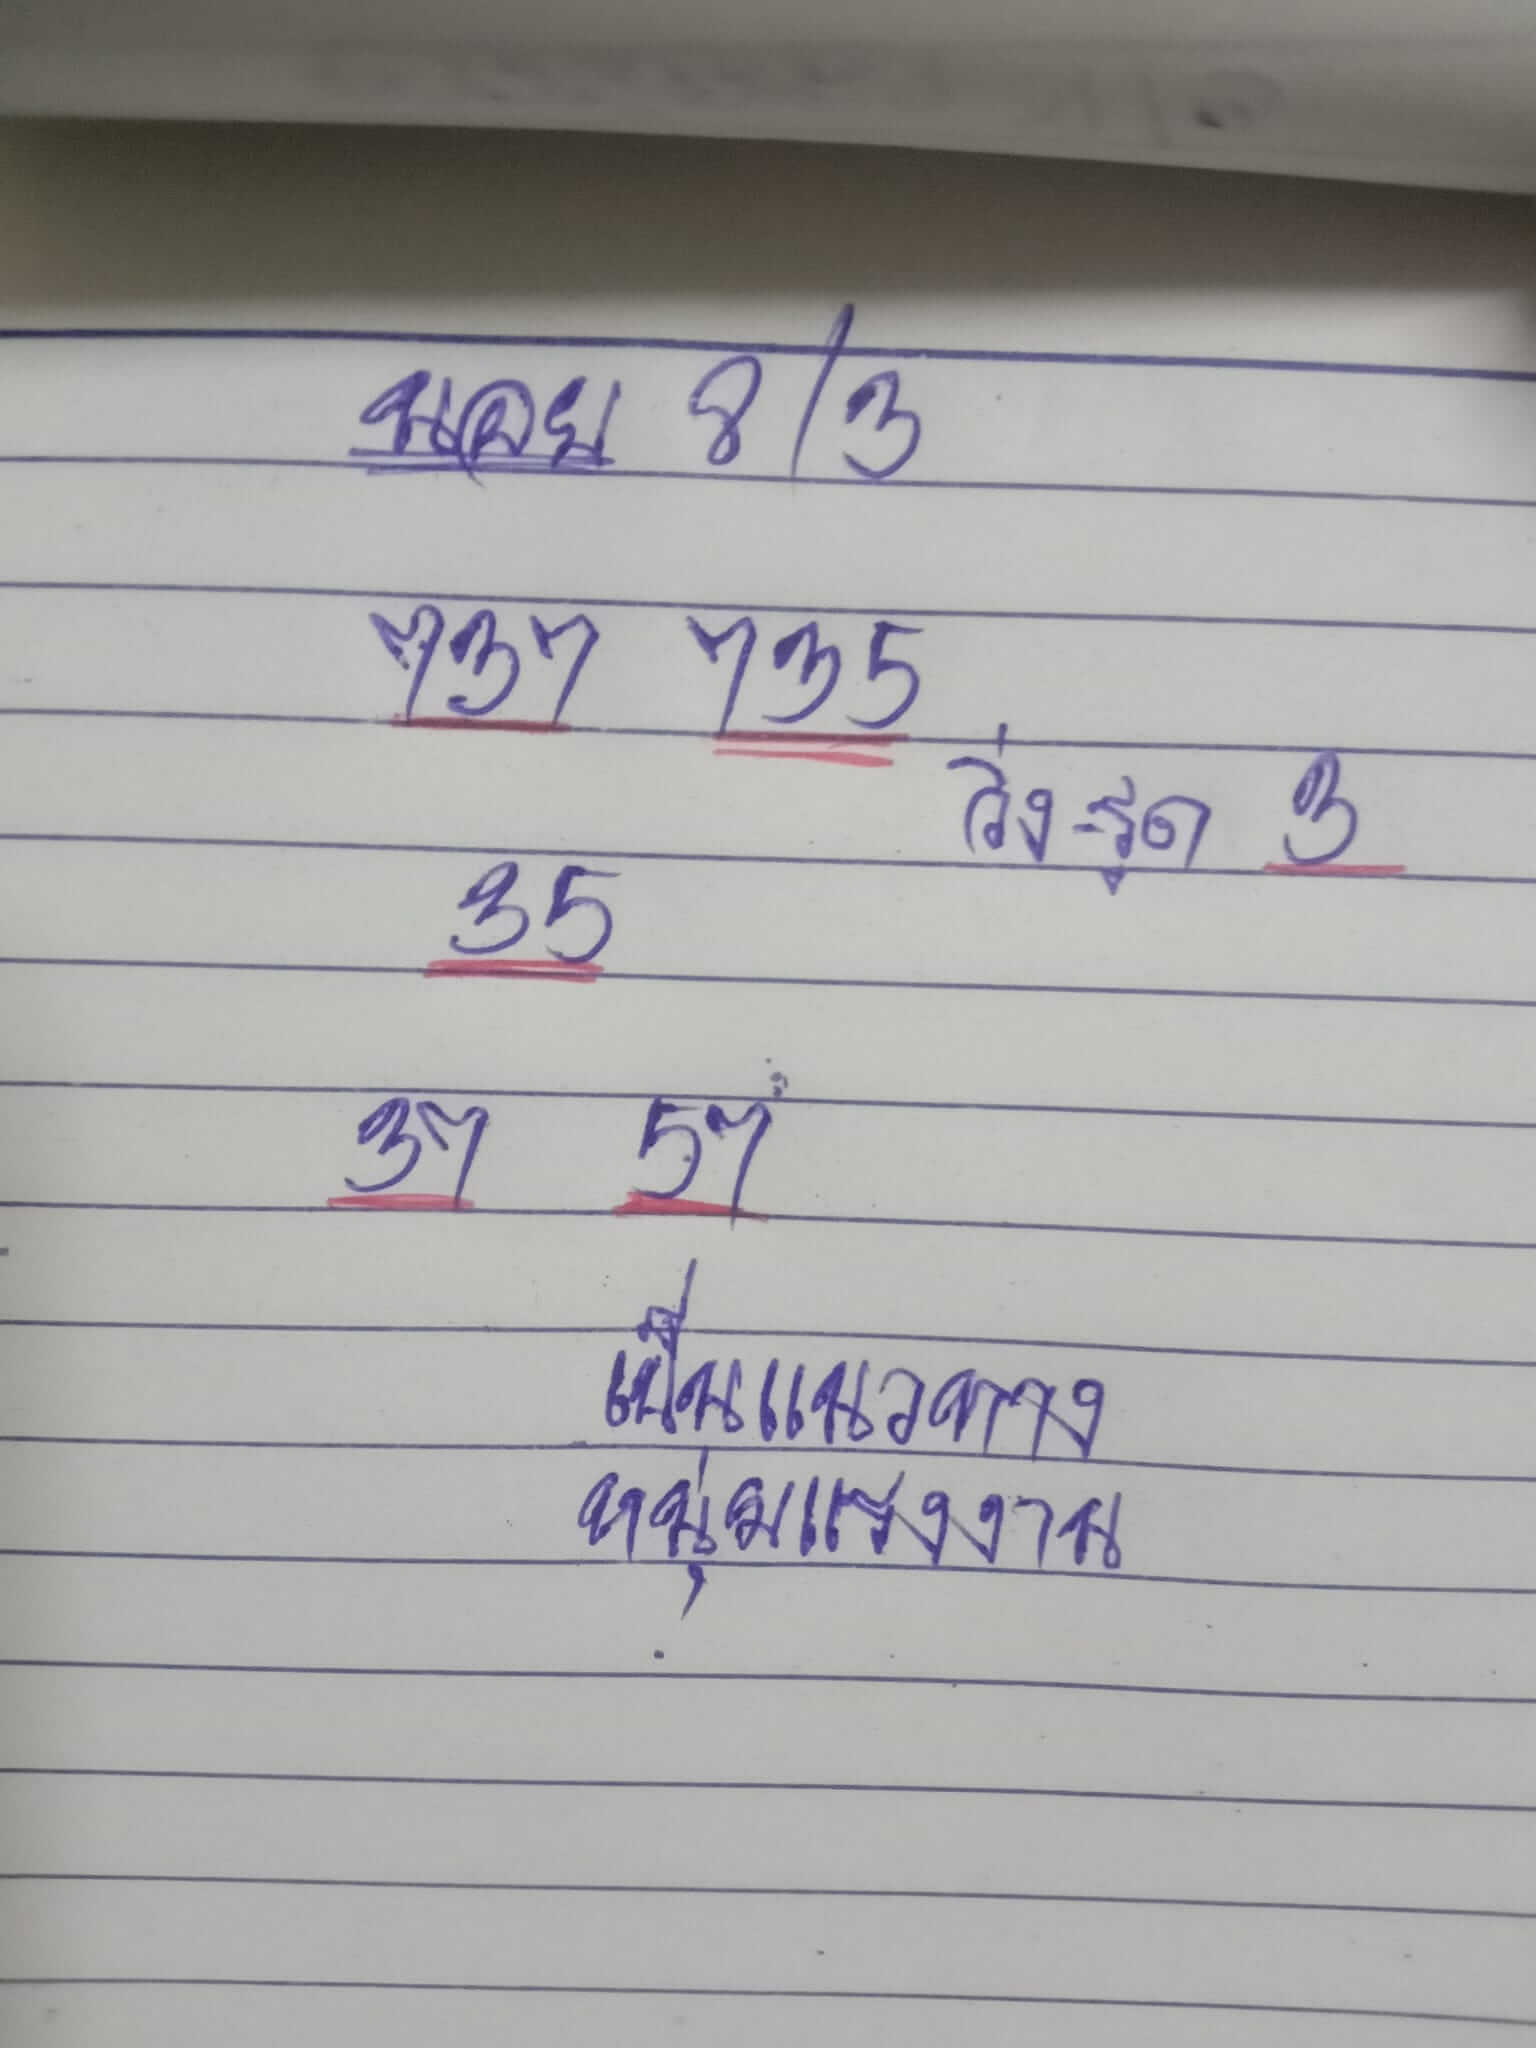 นอย 8/3
737 735
วิ่ง-รูด 3
35
37 57
เป็นแนวทาง
หนุ่มแรงงาน